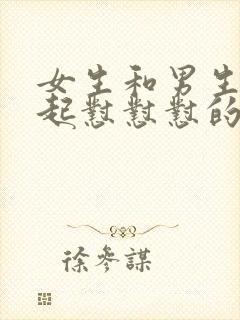 女生和男生
起怼怼怼的
徐参謀